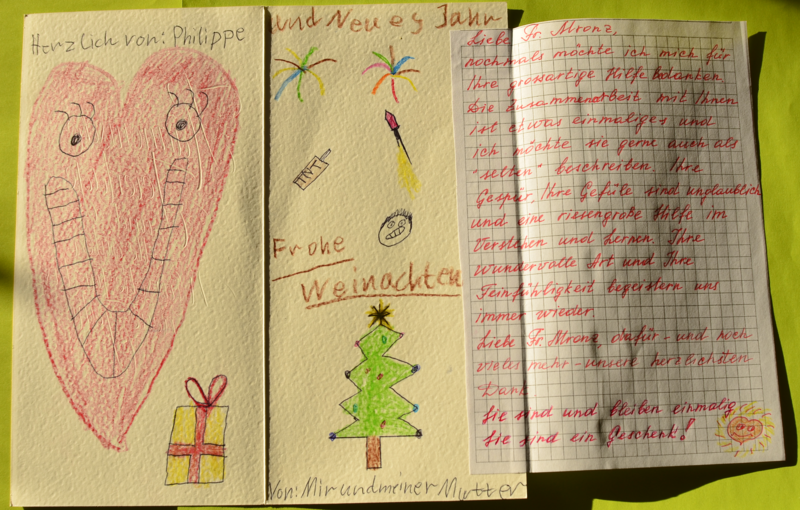 Herzlich von: Philippe
und Neues Jahr
Frohe
Weinachten
Von: Mir und meiner Mutter
Liebe Fr. Mronz,
nochmals möchte ich mich für
Ihre grossartige Hilfe bedanken
Die Zusammenarbeit mit Ihnen
ist etwas einmaliges und
ich möchte sie gerne auch als
"selten" beschreiben. Ihre
Gespür, Ihre Gefüle sind unglaublich
und eine riesengroße Hilfe im
Verstehen und Lernen. Ihre
wundervolle Art und Ihre
Feinfühligkeit begeistern uns
immer wieder.
Liebe Fr. Mronz, dafür - und noch
vieles mehr - unsere herzlichsten
Dank
Sie sind und bleiben einmalig
Sie sind ein Geschenk!